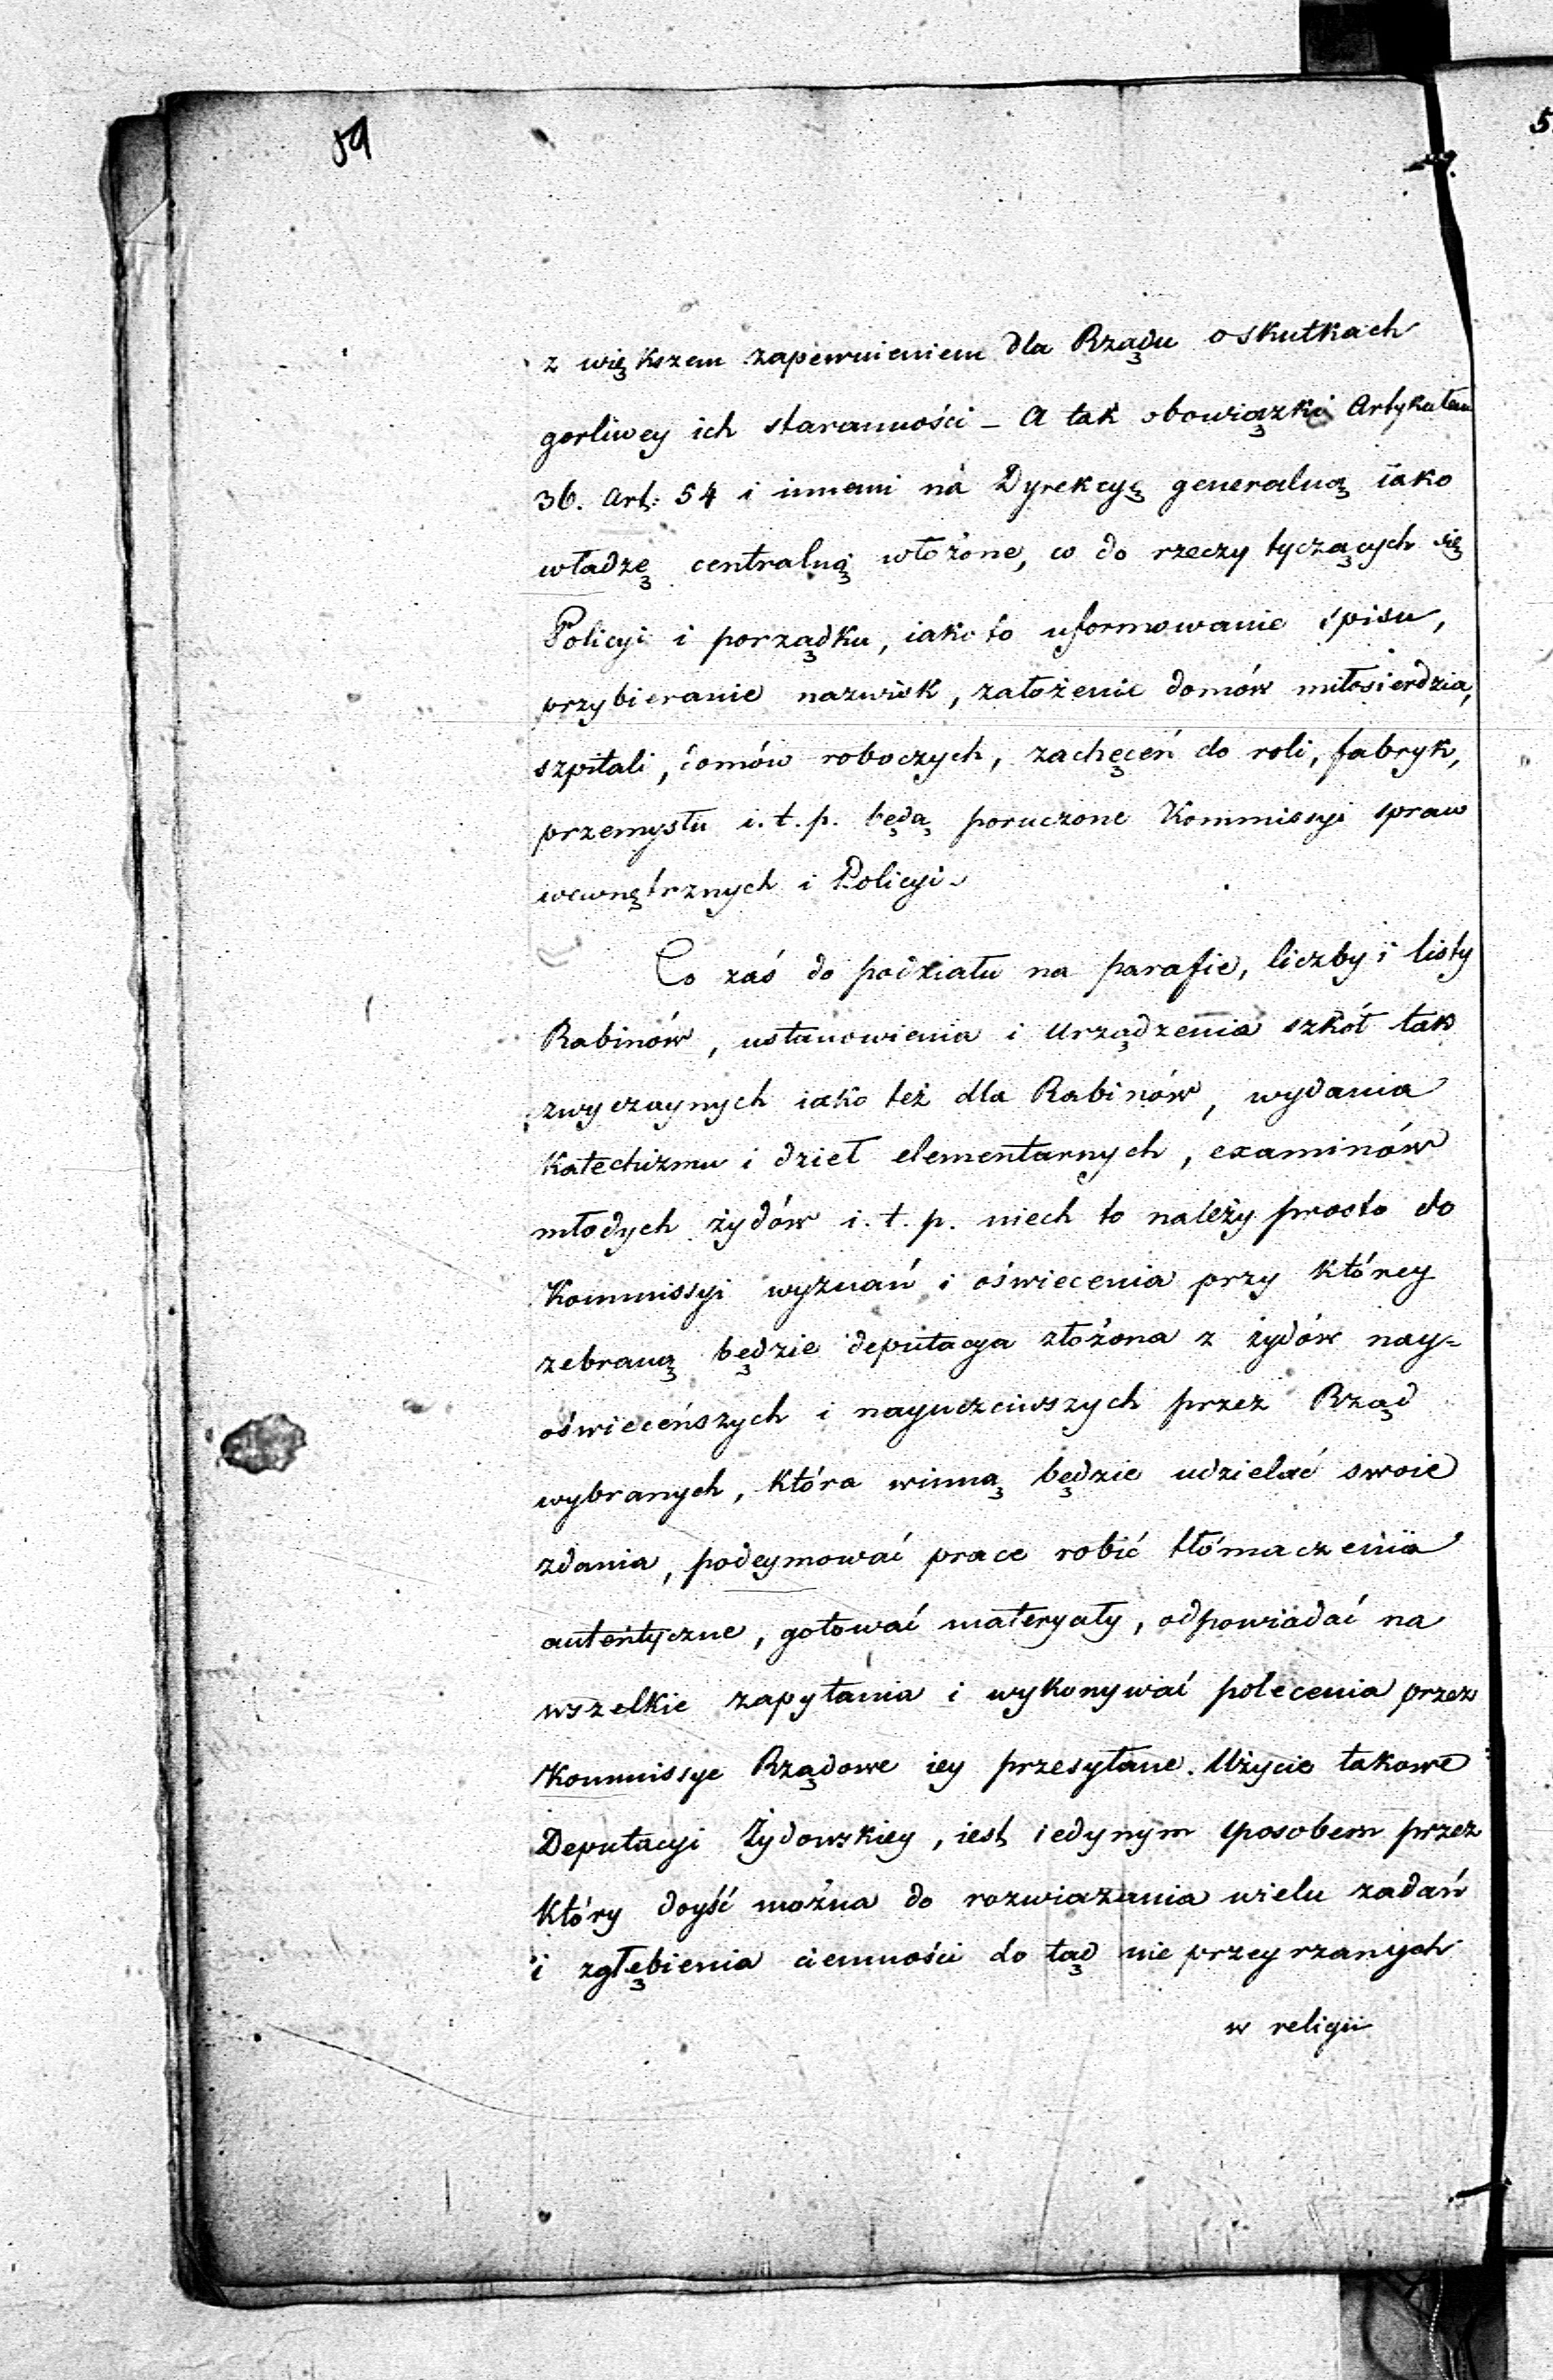 59
z większem zapewnieniem dla Rządu o skutkach
gorliwey ich staranności – A tak obowiązki Artykułem
36. Art: 54 i innemi na Dyrekcyę generalną iako
władzę centralną włożone, co do rzeczy tyczących się
Policyi i porządku, iako to uformowanie spisu,
przybieranie nazwisk, założenie domów miłosierdzia,
szpitali, domów roboczych, zachęceń do roli, fabryk,
przemysłu i. t. p. będą poruczone Kommissyi spraw
wewnętrznych i Policyi.
Co zaś do podziału na parafie, liczby i listy
Rabinów, ustanowienia i urządzenia szkół tak
zwyczaynych iako też dla Rabinów, wydania
Katechizmu i dzieł elementarnych, examinów
młodych żydów i. t. p. niech to należy prosto do
Kommissyi wyznań i oświecenia przy którey
zebraną będzie deputacya złożona z żydów nay=
oświeceńszych i nayuczciwszych przez Rząd
wybranych, która winną będzie udzielać swoie
zdania, podeymować prace robić tłómaczenia
autentyczne, gotować materyały, odpowiadać na
wszelkie zapytania i wykonywać polecenia przez
Kommissye Rządowe iey przesyłane. Użycie takowe
Deputacyi Żydowskiey, iest iedynym sposobem przez
który doyść można do rozwiazania wielu zadań
i zgłębienia ciemności do tąd nie przeyrzanych
w religii